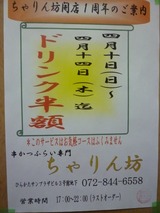 ちゃりん坊開店1周年のご案内
四月十日(日)〜
四月十四日(木)迄
ドリンク半額
*このサービスはお気軽コースはふくみません
串かつふらい専門
ちゃりん坊
072-844-6558
営業時間 17:00~22:00(ラストオーダー)